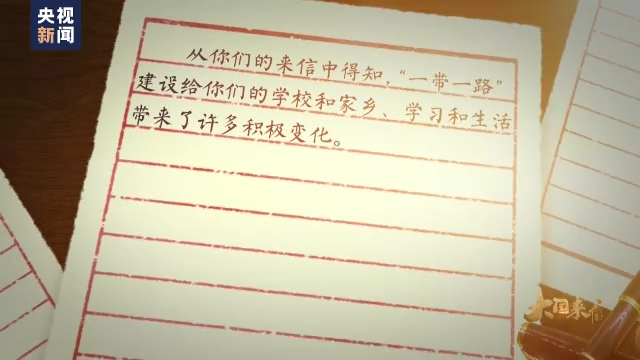 央视
新闻
从你们的来信中得知，“一带一路”
建设给你们的学校和家乡、学习和生活
带来了许多积极变化。
大国来信